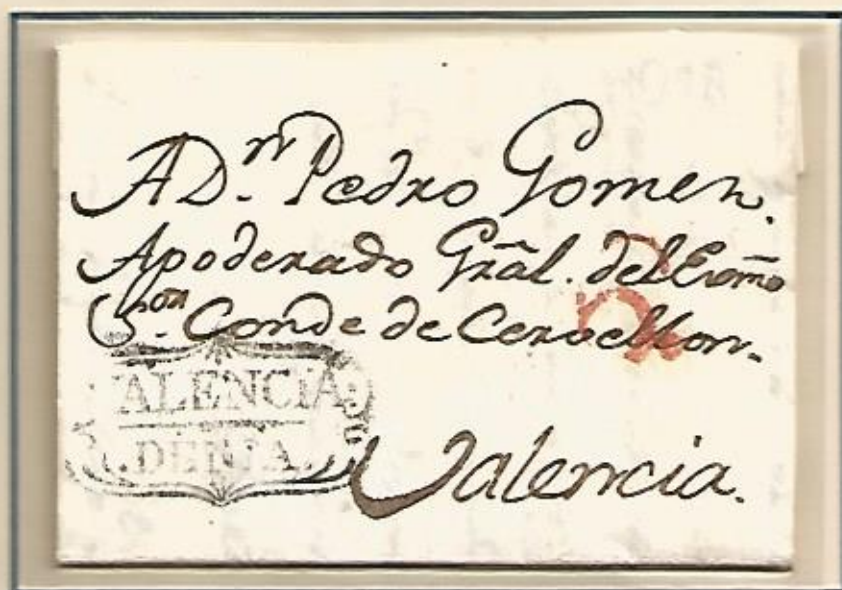 A D.ⁿ Pedro Gomez.
Apoderado Grãl. del Exmõ
S.ᵒʳ Conde de Cervellon.
VALENCIA
DENIA.
Valencia.